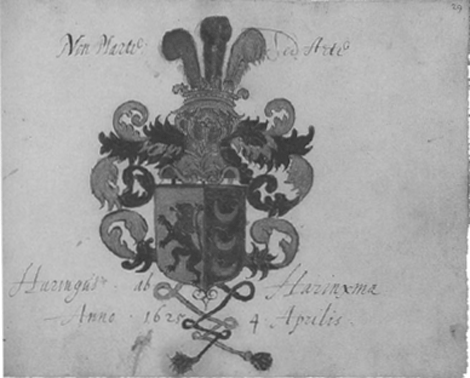 29
Non Marte Sed Arte
Haringus ab Harinxma
Anno 1625 4 Aprilis